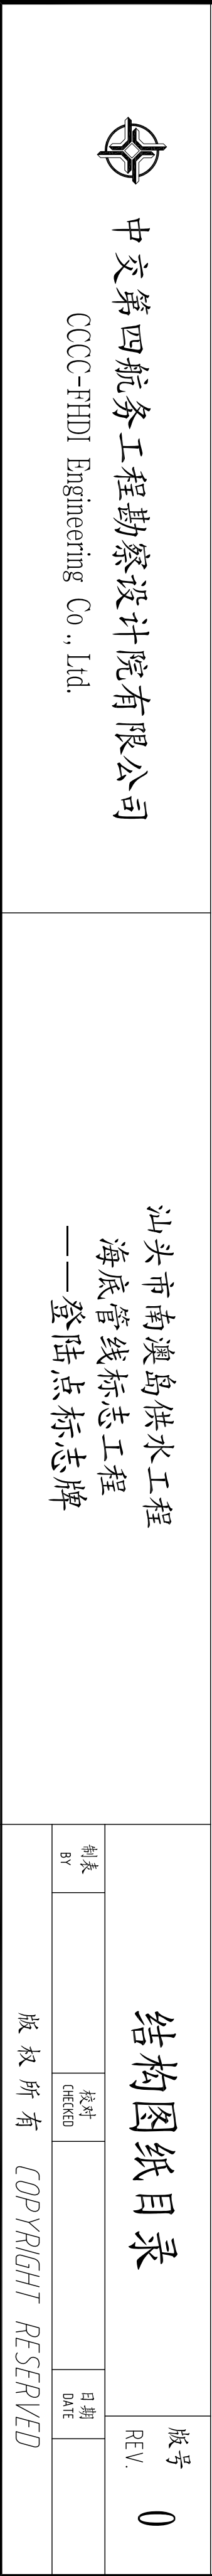 中交第四航务工程勘察设计院有限公司
CCCC-FHDI Engineering Co., Ltd.
汕头市南澳岛供水工程
海底管线标志工程
——登陆点标志牌
结构图纸目录
版号
REV.
0
制表
BY
校对
CHECKED
日期
DATE
版权所有 COPYRIGHT RESERVED